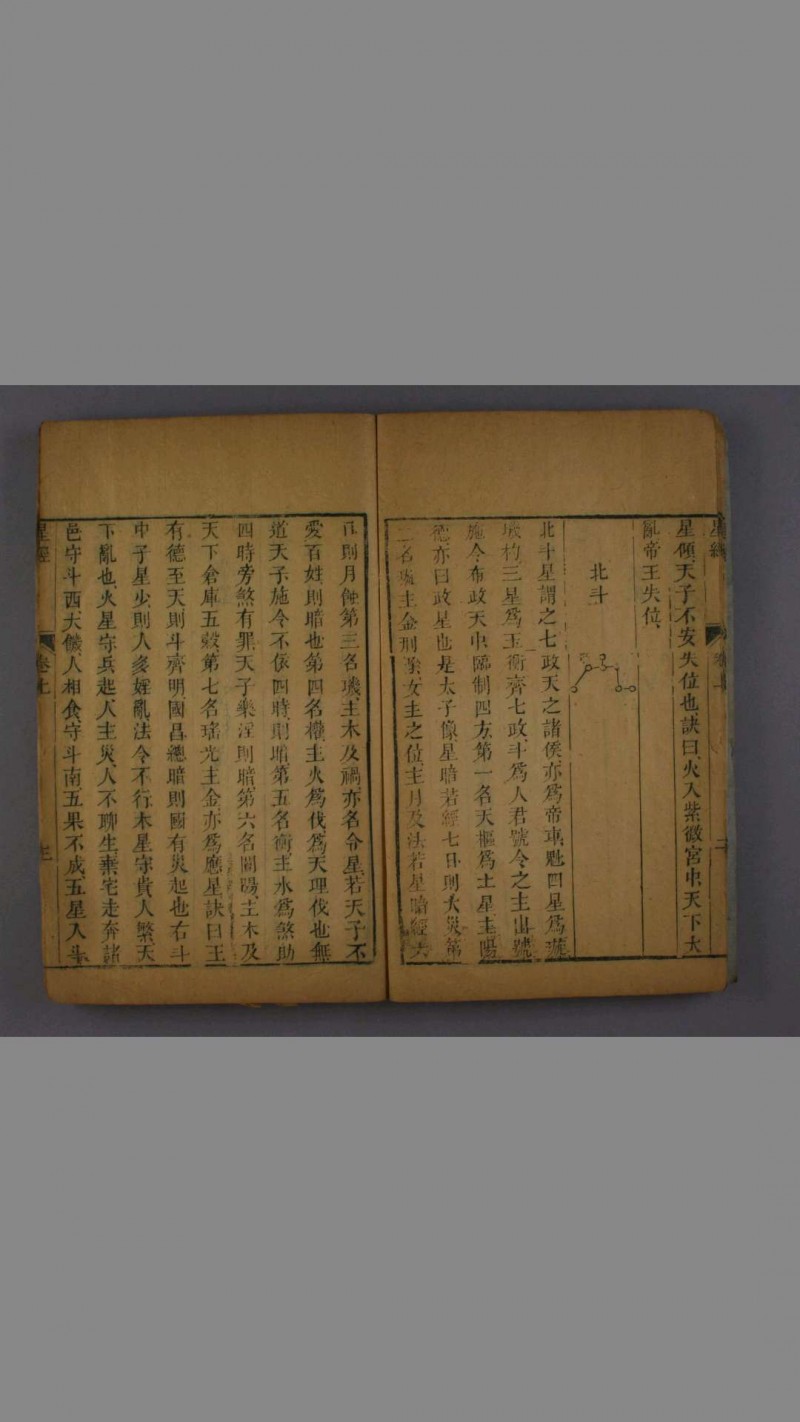 星經
星傾天子不安失位也訣曰火入紫微宮中天下大
亂帝王失位
北斗
北斗星謂之七政天之諸侯亦爲帝車魁四星爲璇
璣杓三星爲玉衡齊七政斗爲人君號令之主出號
施令布政天中臨制四方第一名天樞爲土星主陽
德亦曰政星也是太子像星暗若經七日則大災第
二名璇主金刑陰女主之位主月及法若星暗經六
日則月蝕第三名璣主木及禍亦名令星若天子不
愛百姓則暗也第四名權主火爲伐爲天理伐也無
道天子施令不依四時則暗第五名衡主水爲煞助
四時旁煞有罪天子樂淫則暗第六名闓陽主木及
天下倉庫五穀第七名瑤光主金亦爲應星訣曰王
有德至天則斗齊明國昌總暗則國有災起也右斗
中子星少則人多婬亂法令不行木星守貴人繫天
下亂也火星守兵起人主災人不聊生棄宅走奔諸
邑守斗西大饑人相食守斗南五果不成五星入斗
星經
卷上